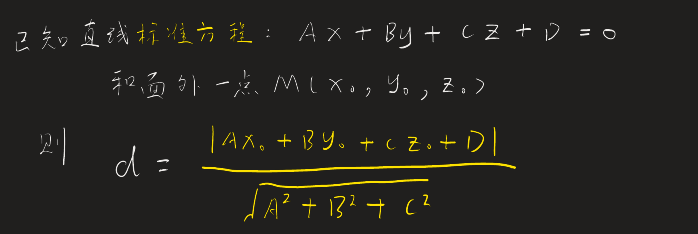 已知直线标准方程: Ax + By + Cz + D = 0
和面外一点 M(x₀, y₀, z₀)
则 d = |Ax₀ + By₀ + Cz₀ + D| / √(A² + B² + C²)